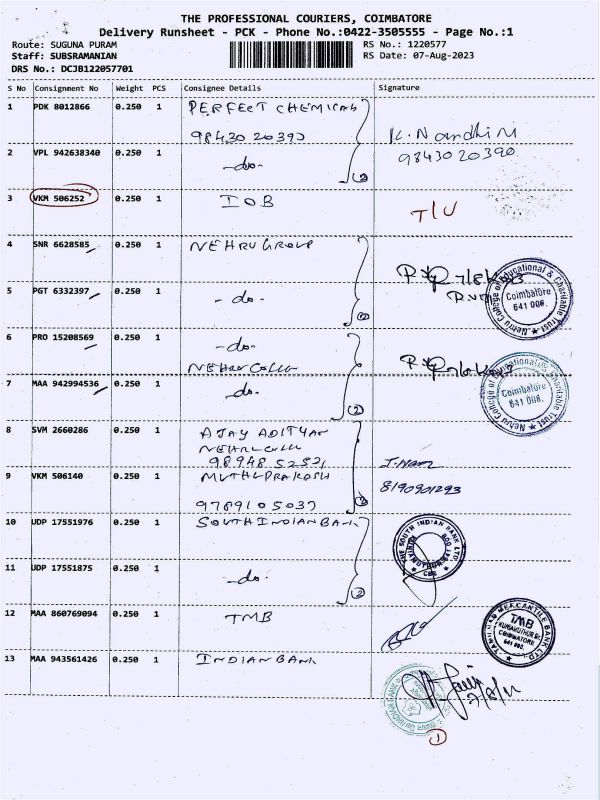 THE PROFESSIONAL COURIERS, COIMBATORE
Delivery Runsheet - PCK - Phone No.:0422-3505555 - Page No.:1
Route: SUGUNA PURAM
RS No.: 1220577
Staff: SUBSRAMANIAN
RS Date: 07-Aug-2023
DRS No.: DCJB122057701
S No Consignment No Weight PCS Consignee Details Signature
1 PDK 8012866 0.250 1 PERFECT CHEMICAL
98430 20390
K. Nandhini
2 VPL 942638340 0.250 1 -do-
9843020390
(2)
3 VKM 506252 0.250 1 IOB
T/U
4 SNR 6628585 0.250 1 NEHRU GROUP
5 PGT 6332397 0.250 1 -do-
Nehru College of Educational & Charitable Trust
Coimbatore
641 008.
(2)
6 PRO 15208569 0.250 1 -do-
NEHRU COLLG
7 MAA 942994536 0.250 1 -do-
Nehru College of Educational & Charitable Trust
Coimbatore
641 008.
(2)
8 SVM 2660286 0.250 1 AJAY ADITYAN
NEHRU COLLG
98948 52521
9 VKM 506140 0.250 1 MUTHUPRAKASH
8190901293
9789105037
(2)
10 UDP 17551976 0.250 1 SOUTH INDIAN BANK
THE SOUTH INDIAN BANK LTD
11 UDP 17551875 0.250 1 -do-
CBE
(2)
12 MAA 860769094 0.250 1 TMB
TAMILNAD MERCANTILE BANK LTD
TMB
COIMBATORE
13 MAA 943561426 0.250 1 INDIAN BANK
INDIAN BANK
(1)